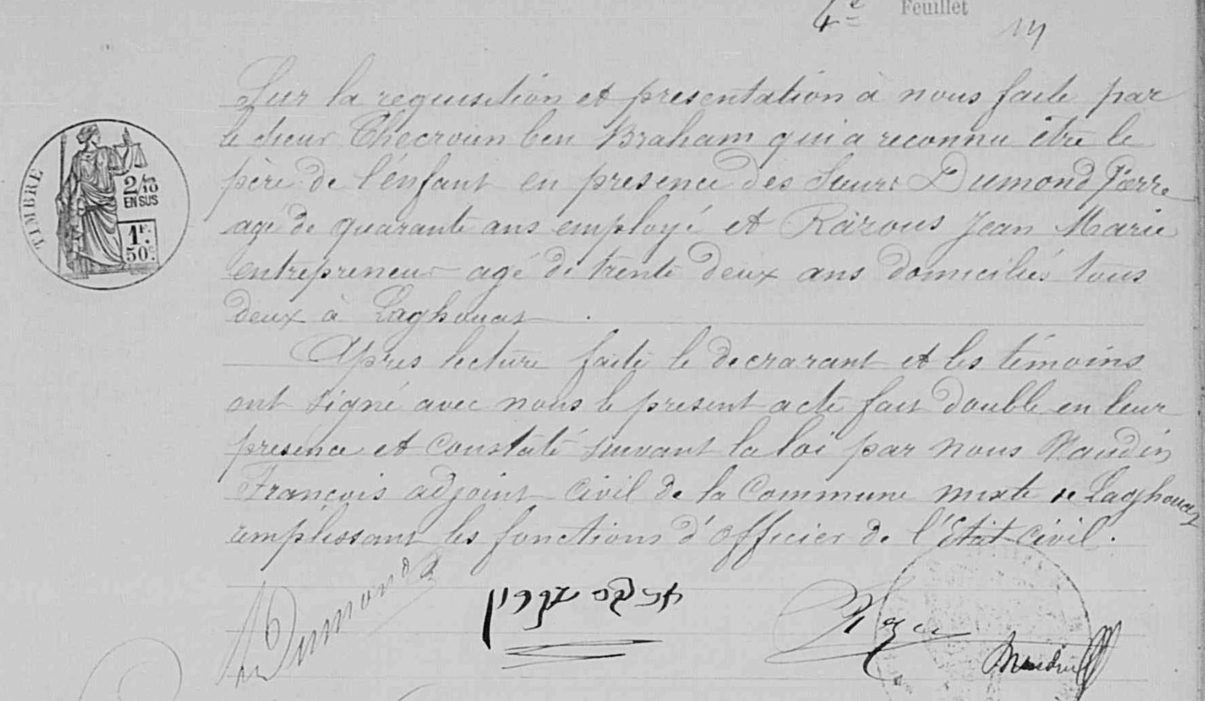 4e Feuillet
Sur la requisition et presentation à nous faite par
le sieur Checroun ben Braham qui a reconnu être le
père de l'enfant en presence des Sieurs Dumond Pierre
agé de quarante ans employé et Razous Jean Marie
entrepreneur agé de trente deux ans domiciliés tous
deux à Laghouat
Après lecture faite le decrarant et les témoins
ont signé avec nous le present acte fait double en leur
presence et constaté suivant la loi par nous Naudin
François adjoint civil de la Commune mixte de Laghouat
remplissant les fonctions d'officier de l'Etat civil.
TIMBRE
2/10
EN SUS
1F.
50c.
Dumond